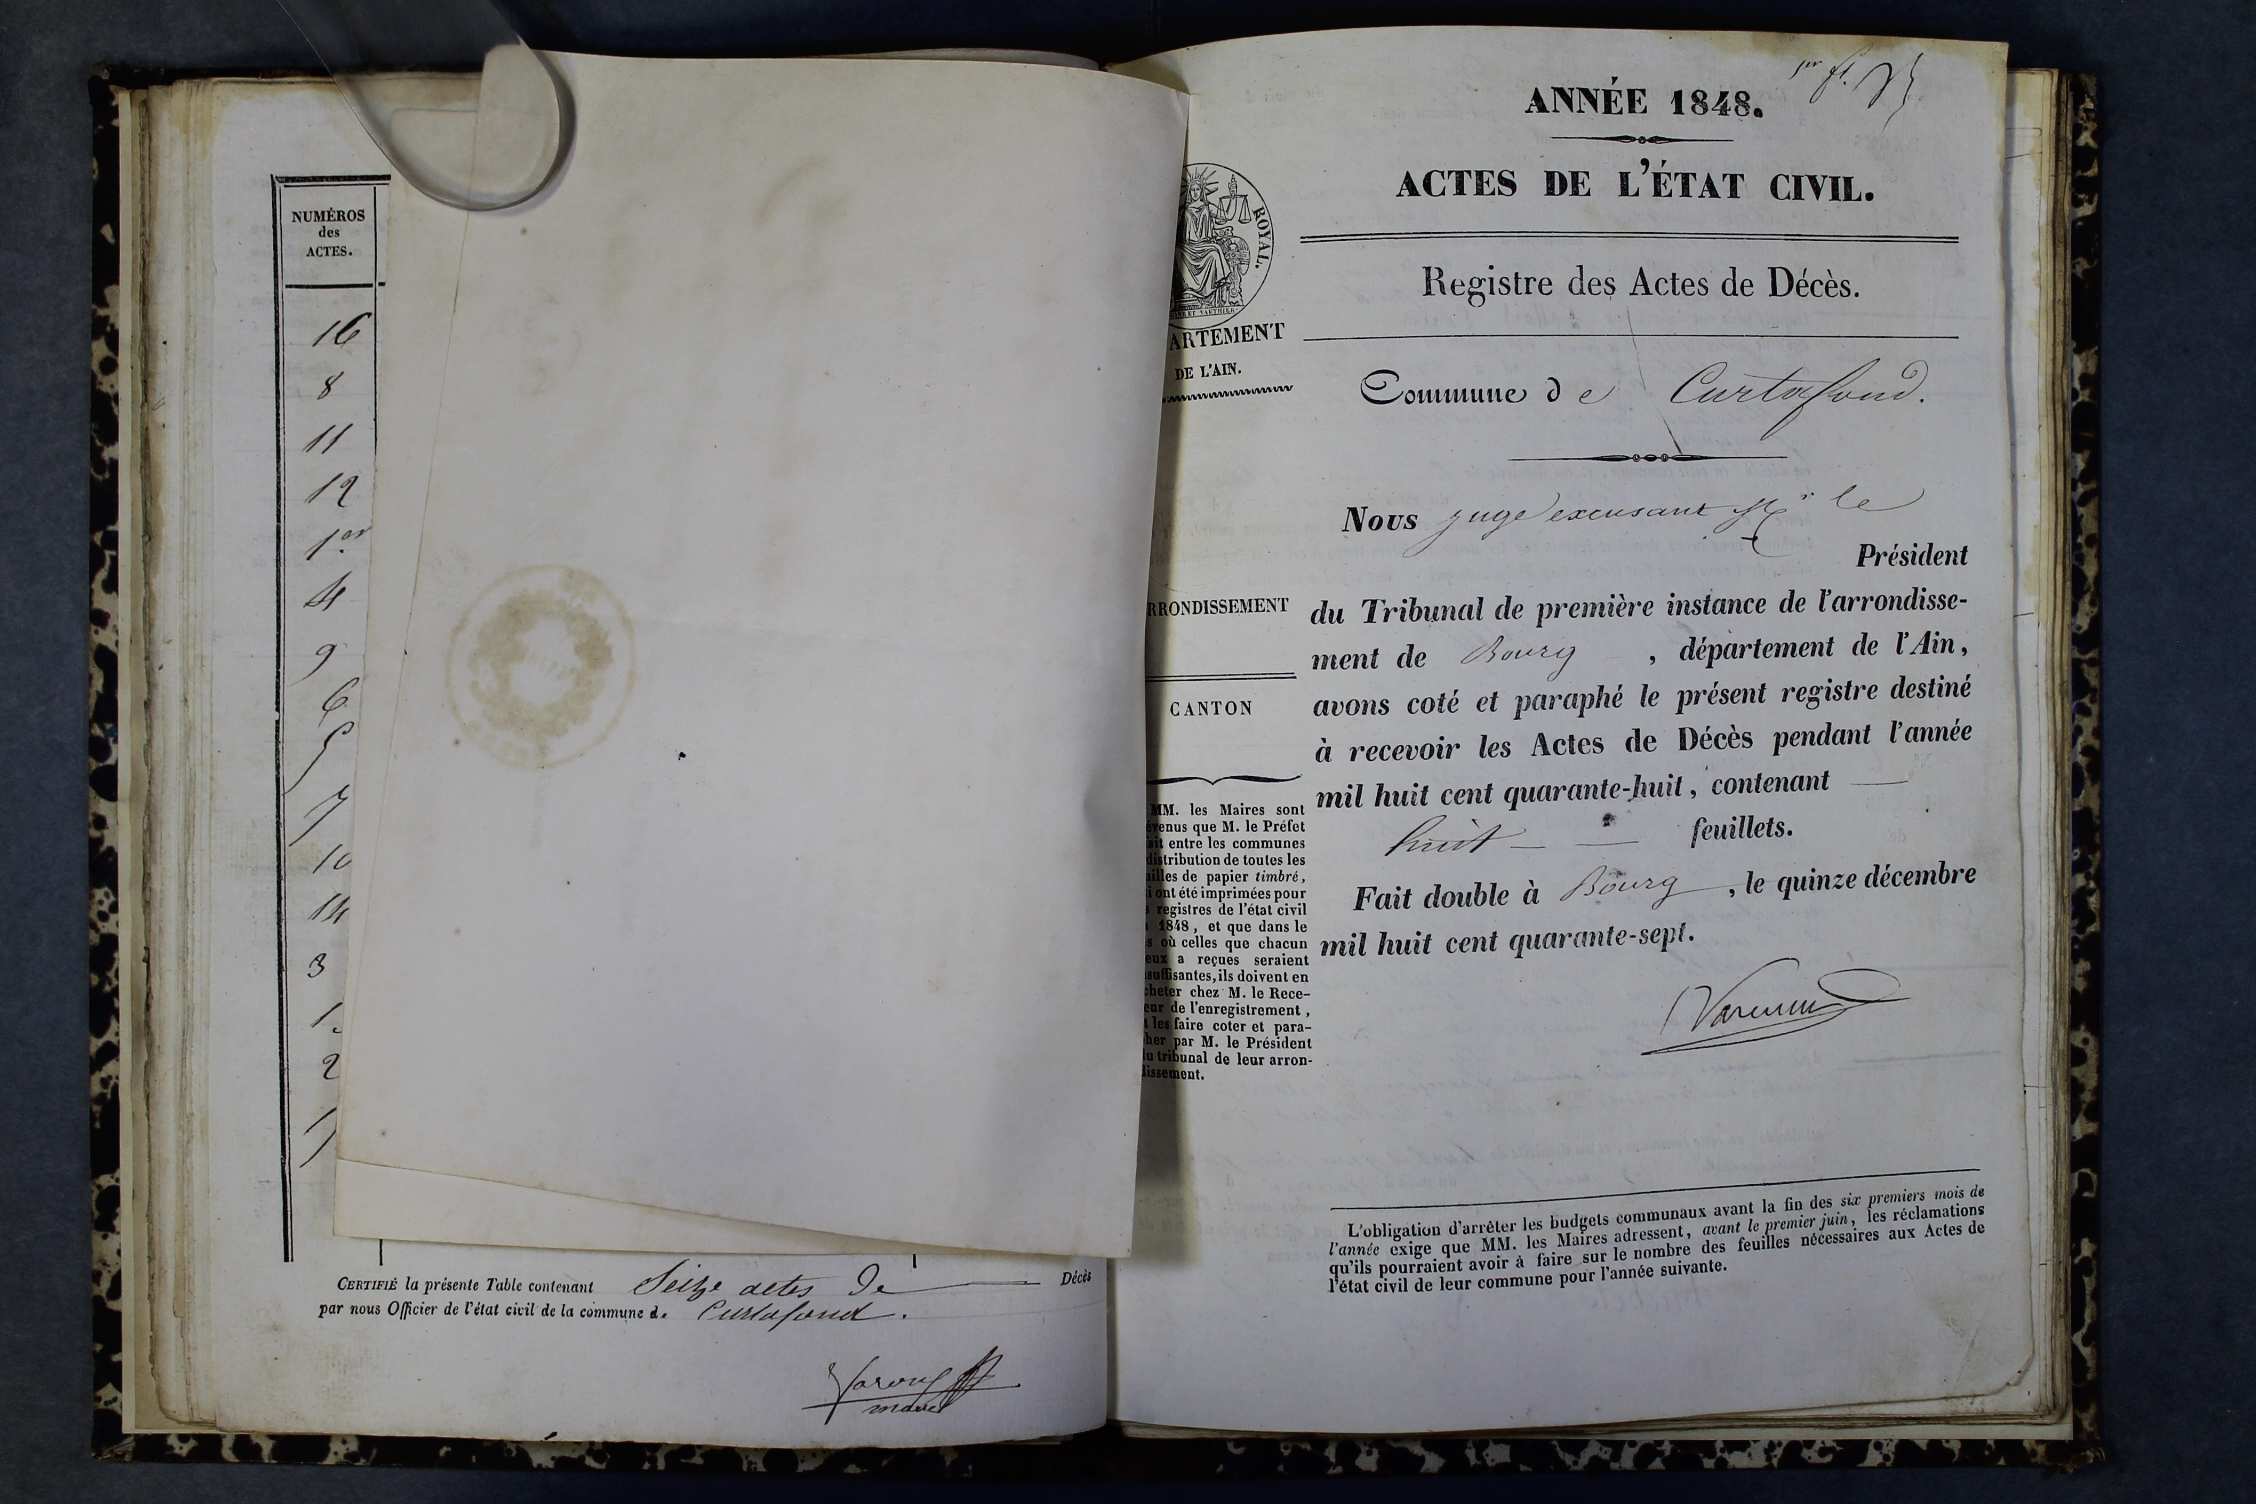 NUMÉROS
des
ACTES.
16
8
11
12
1er
4
9
6
5
7
10
14
3
1
2
CERTIFIÉ la présente Table contenant Seize actes De Décès
par nous Officier de l'état civil de la commune de Curtafond.
maire
ANNÉE 1848.
1er ft.
ACTES DE L'ÉTAT CIVIL.
Registre des Actes de Décès.
Commune de Curtafond.
ROYAL.
ARTEMENT
DE L'AIN.
RRONDISSEMENT
CANTON
MM. les Maires sont
venus que M. le Préfet
ait entre les communes
distribution de toutes les
uilles de papier timbré,
i ont été imprimées pour
s registres de l'état civil
1848, et que dans le
s où celles que chacun
eux a reçues seraient
suffisantes, ils doivent en
cheter chez M. le Rece-
eur de l'enregistrement,
les faire coter et para-
her par M. le Président
u tribunal de leur arron-
dissement.
Nous juge excusant Mr le
Président
du Tribunal de première instance de l'arrondisse-
ment de Bourg, département de l'Ain,
avons coté et paraphé le présent registre destiné
à recevoir les Actes de Décès pendant l'année
mil huit cent quarante-huit, contenant
huit feuillets.
Fait double à Bourg, le quinze décembre
mil huit cent quarante-sept.
L'obligation d'arrêter les budgets communaux avant la fin des six premiers mois de
l'année exige que MM. les Maires adressent, avant le premier juin, les réclamations
qu'ils pourraient avoir à faire sur le nombre des feuilles nécessaires aux Actes de
l'état civil de leur commune pour l'année suivante.